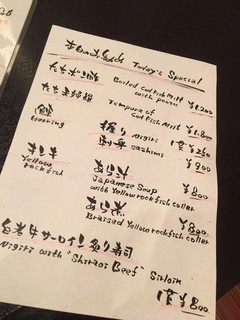 本日のおすすめ Today's Special
たちポン酢 Boiled Codfish Milt with ponzu ¥1,200
たち天婦羅 Tempura of Codfish Milt ¥1,800
鰊 Herring 握り Nigiri 1貫 ¥250
刺身 sashimi ¥900
Yellow rockfish あら汁 Japanese Soup with Yellow rockfish collar ¥800
あら煮 Braised Yellow rockfish collar ¥800
白老牛サーロイン炙り寿司
Nigiri with "Shiraoi Beef" Sirloin
1貫 ¥800